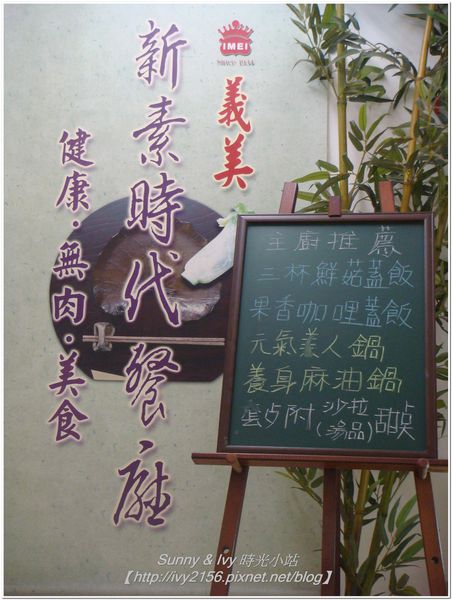 IMEI
SINCE 1934
義美
新素時代餐廳
健康·無肉·美食
主廚推薦
三杯鮮菇蓋飯
果香咖哩蓋飯
元氣美人鍋
養身麻油鍋
套夕附沙拉(湯品)甜点
Sunny & Ivy 時光小站
【http://ivy2156.pixnet.net/blog】